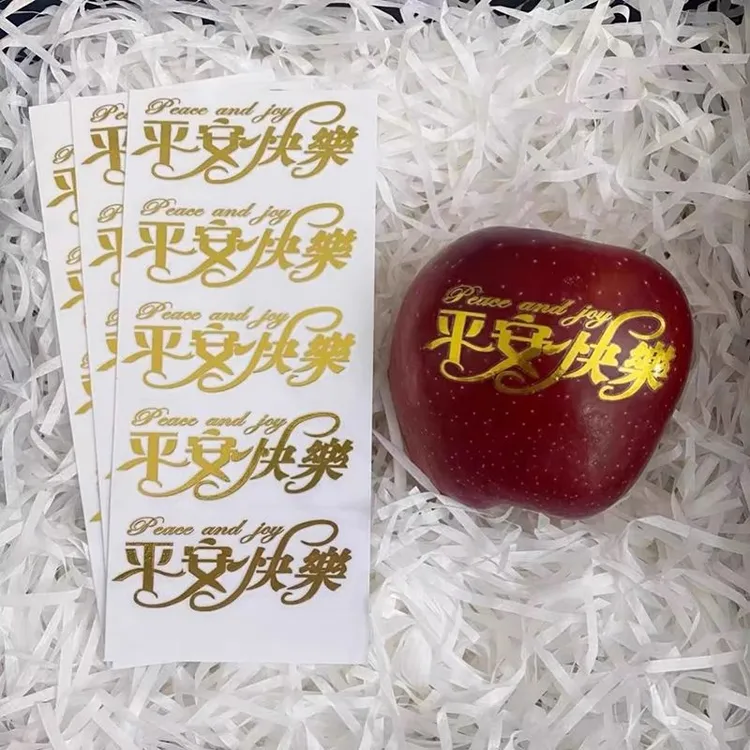 Peace and joy
平安快樂
Peace and joy
平安快樂
Peace and joy
平安快樂
Peace and joy
平安快樂
Peace and joy
平安快樂
Peace and joy
平安快樂